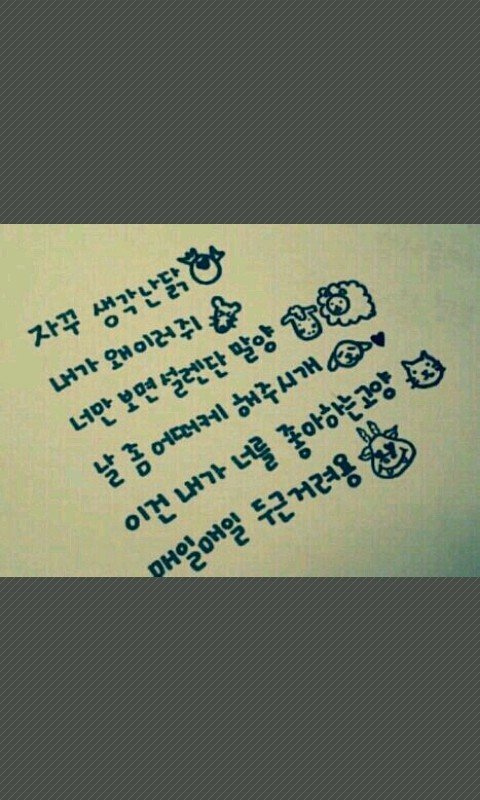 자꾸 생각난닭
내가 왜이러쥐
너만 보면 설렌단 말양
날 좀 어떠케 해주시개
이건 내가 너를 좋아하는고양
매일매일 두근거려용